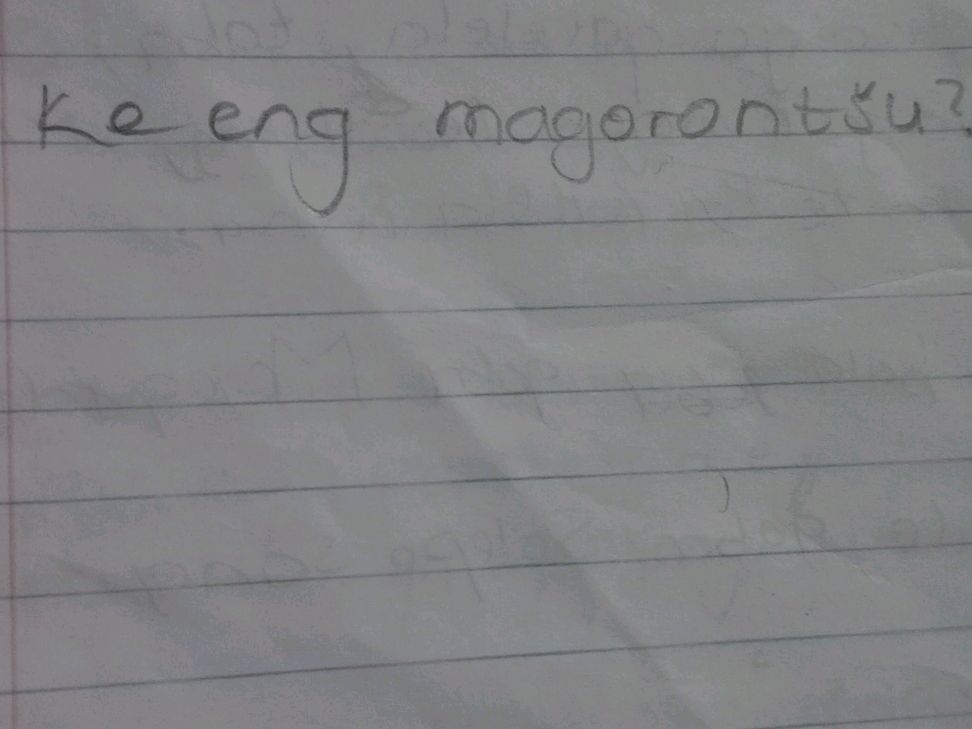 Ke eng magorontšu?